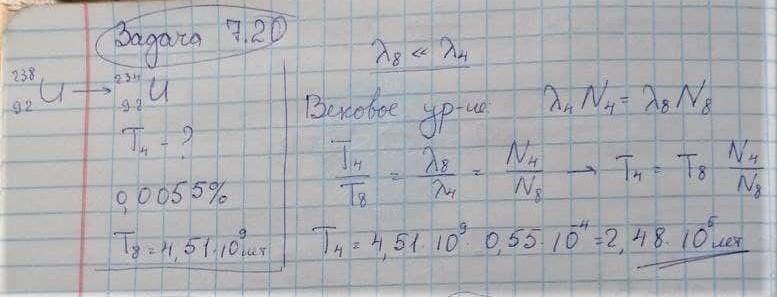 Задача 7.20
²³⁸₉₂U → ²³⁴₉₂U
T₄ - ?
0,0055%
T₈ = 4,51·10⁹ лет
λ₈ << λ₄
Вековое ур-ие: λ₄N₄ = λ₈N₈
T₄/T₈ = λ₈/λ₄ = N₄/N₈ → T₄ = T₈ N₄/N₈
T₄ = 4,51·10⁹· 0,55·10⁻⁴ = 2,48·10⁵ лет